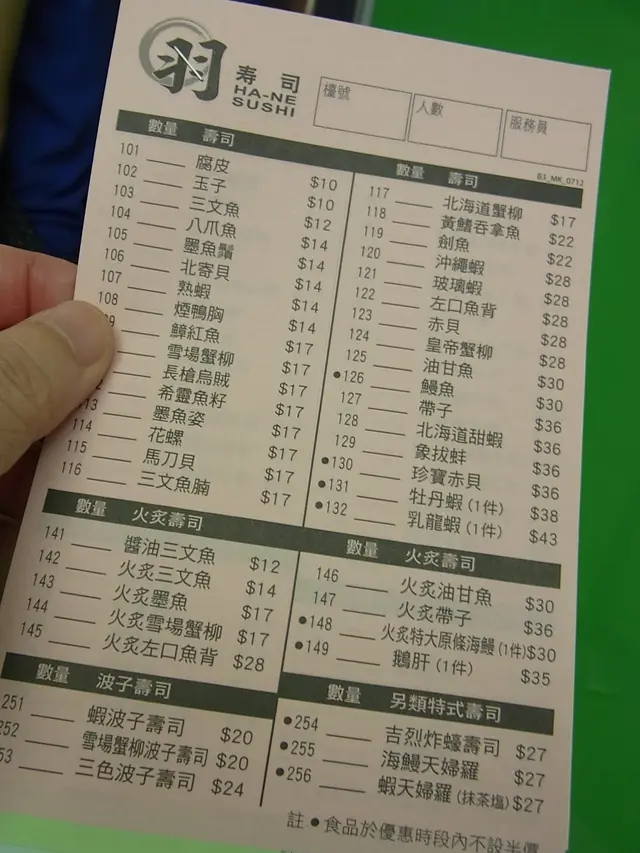 羽
寿司
HA-NE
SUSHI
檯號
人數
服務員
B3_MK_0712
數量 壽司
101 腐皮 $10
102 玉子 $10
103 三文魚 $12
104 八爪魚 $14
105 墨魚鬚 $14
106 北寄貝 $14
107 熟蝦 $14
108 煙鴨胸 $14
9 鱆紅魚 $17
雪場蟹柳 $17
長槍烏賊 $17
2 希靈魚籽 $17
13 墨魚姿 $17
114 花螺 $17
115 馬刀貝 $17
116 三文魚腩 $17
數量 壽司
117 北海道蟹柳 $17
118 黃鰭吞拿魚 $22
119 劍魚 $22
120 沖繩蝦 $28
121 玻璃蝦 $28
122 左口魚背 $28
123 赤貝 $28
124 皇帝蟹柳 $28
125 油甘魚 $30
●126 鰻魚 $30
127 帶子 $36
128 北海道甜蝦 $36
129 象拔蚌 $36
●130 珍寶赤貝 $36
●131 牡丹蝦 (1件) $38
●132 乳龍蝦 (1件) $43
數量 火炙壽司
141 醬油三文魚 $12
142 火炙三文魚 $14
143 火炙墨魚 $17
144 火炙雪場蟹柳 $17
145 火炙左口魚背 $28
數量 火炙壽司
146 火炙油甘魚 $30
147 火炙帶子 $36
●148 火炙特大原條海鰻 (1件) $30
●149 鵝肝 (1件) $35
數量 波子壽司
251 蝦波子壽司 $20
252 雪場蟹柳波子壽司 $20
53 三色波子壽司 $24
數量 另類特式壽司
●254 吉烈炸蠔壽司 $27
●255 海鰻天婦羅 $27
●256 蝦天婦羅 (抹茶塩) $27
註 ● 食品於優惠時段內不設半價